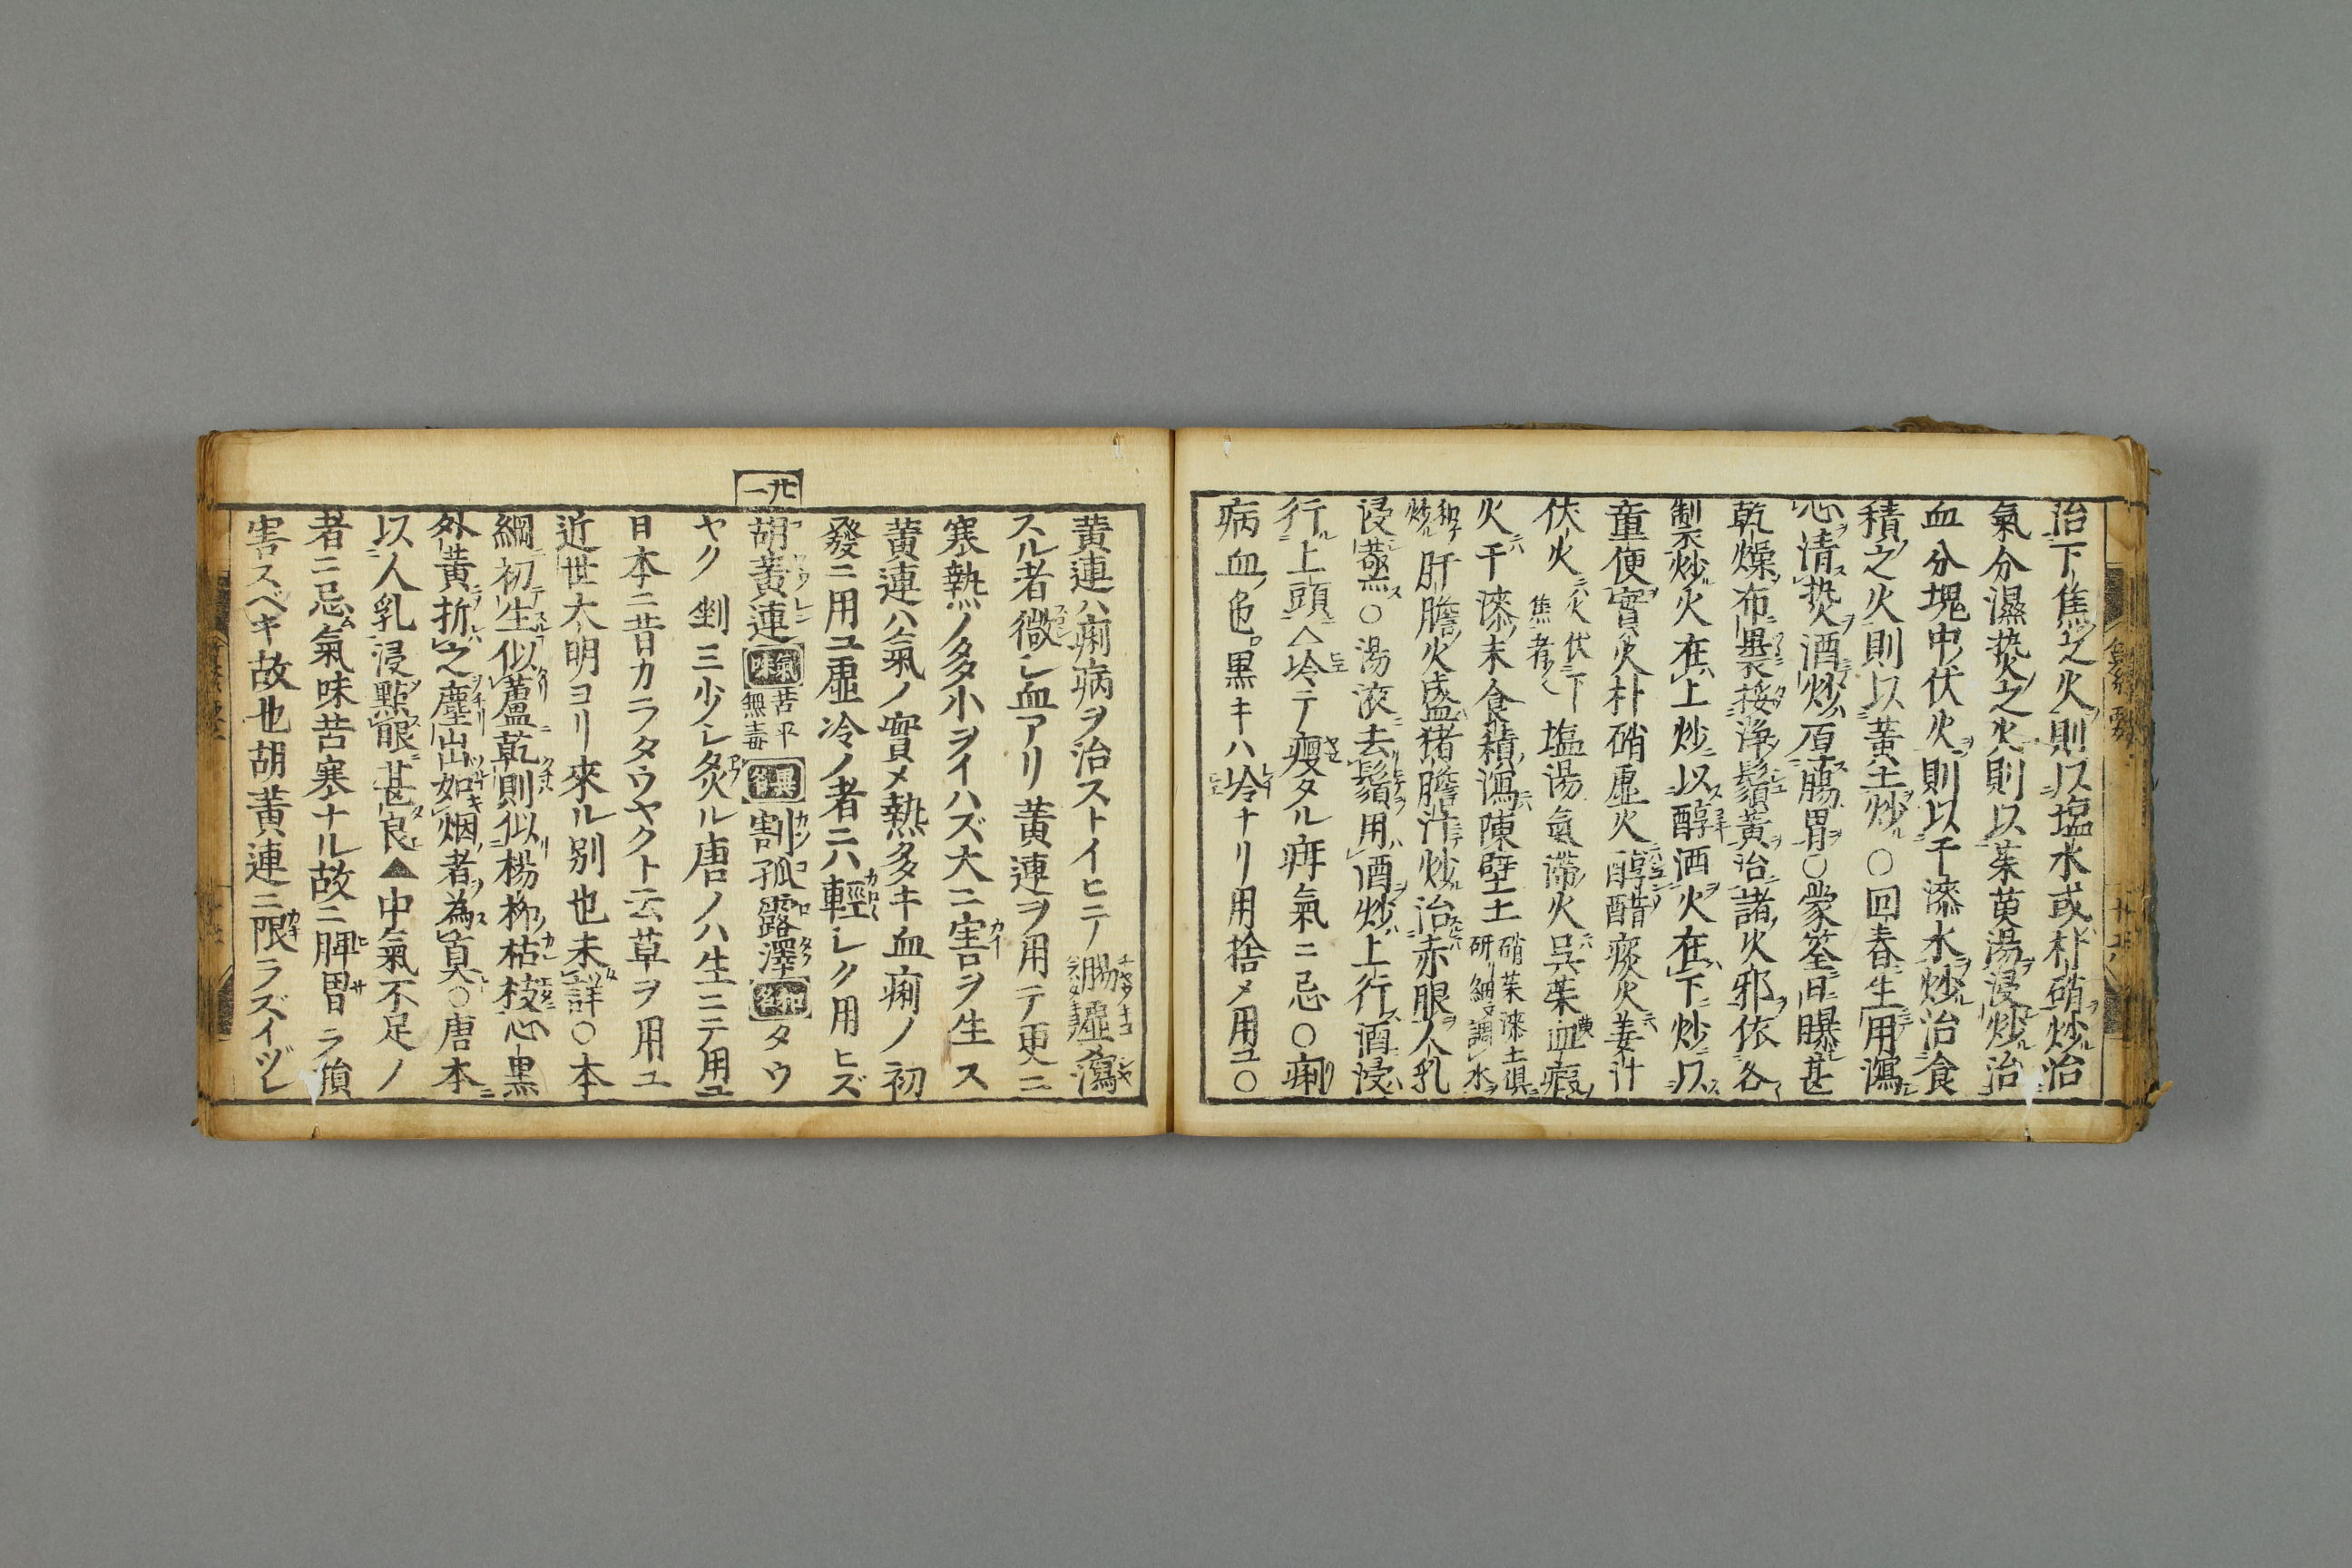 治下焦之火則以塩水或朴硝炒治
氣分濕热之火則以茱萸湯浸炒治
血分塊中伏火則以干漆水炒治食
積之火則以黃土炒○回春生用瀉
心清热酒炒厚腸胃○蒙筌日曝甚
乾燥布裹挼净鬚黃治諸火邪依各
製炒火在上炒以醇酒火在下炒以
童便實火朴硝虛火醇醋痰火姜汁
伏火 火伏下焦者 塩湯氣滞火呉茱萸血瘕
火干漆末食積瀉陳壁土 研細調水
和炒肝膽火盛猪膽汁炒治赤眼人乳
浸蒸○湯液去鬚用酒炒上行酒浸
行上頭△冷テ痩タル疳氣ニ忌○痢
病血色黒キハ冷ナリ用捨メ用ユ○
黄連ハ痢病ヲ治ストイヒテ腸虚瀉
スル者微シ血アリ黄連ヲ用テ更ニ
寒熱ノ多小ヲイハズ大ニ害ヲ生ス
黄連ハ氣ノ實メ熱多キ血痢ノ初
發ニ用ユ虚冷ノ者ニハ輕シク用ヒズ
廿一
胡黃連 氣味 苦平無毒 異名 割孤露澤 和名 タウ
ヤク 剉三少シ炙ル唐ノハ生ニテ用ユ
日本ニ昔カラタウヤクト云草ヲ用ユ
近世大明ヨリ來ル別也未詳○本
綱初生似蘆乾則似楊柳枯枝心黒
外黃折之塵出如烟者為眞○唐本
以人乳浸點眼甚良▲中氣不足ノ
者ニ忌氣味苦寒ナル故ニ脾胃ヲ損
害スベキ故也胡黄連ニ限ラズイヅレ